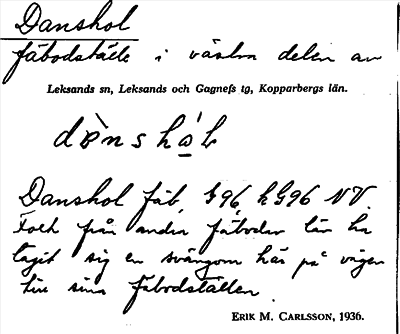 Danshol
fäbodställe i västra delen av
Leksands sn, Leksands och Gagnefs tg, Kopparbergs län.
Danshol fäb. §96, hG96 NV.
Folk från andra fäbodar lär ha
tagit sig en svängom här på vägen
till sina fäbodställen.
ERIK M. CARLSSON, 1936.